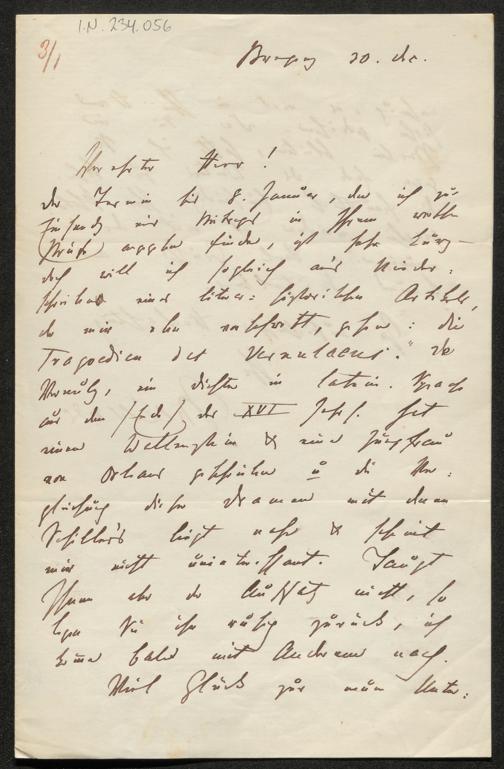 I.N. 234.056
3/1
30. Dec.
Verehrter Herr!
der Termin bis 8. Januar, den ich zur
in Ihrem werthe
angegeben finde, ist sehr kurz —
doch will ich sogleich an's Nieder-
schreiben eines literar-historischen Artikels,
der mir eben vorschwebt, gehen: "die
Tragoedien des Vernulaeus." De
Vernulz, ein Dichter in latein. Sprache
aus dem /Ende/ des XVI Jahrh. hat
einen Wallenstein & eine Jungfrau
von Orleans geschrieben u die Ver-
gleichung dieser Dramen mit denen
Schiller's liegt nahe & scheint
mir nicht uninteressant. Taugt
Ihnen aber der Aufsatz nicht, so
legen Sie ihn ruhig zurück, ich
komme bald mit Anderem nach.
Viel Glück zum neuen Unter-